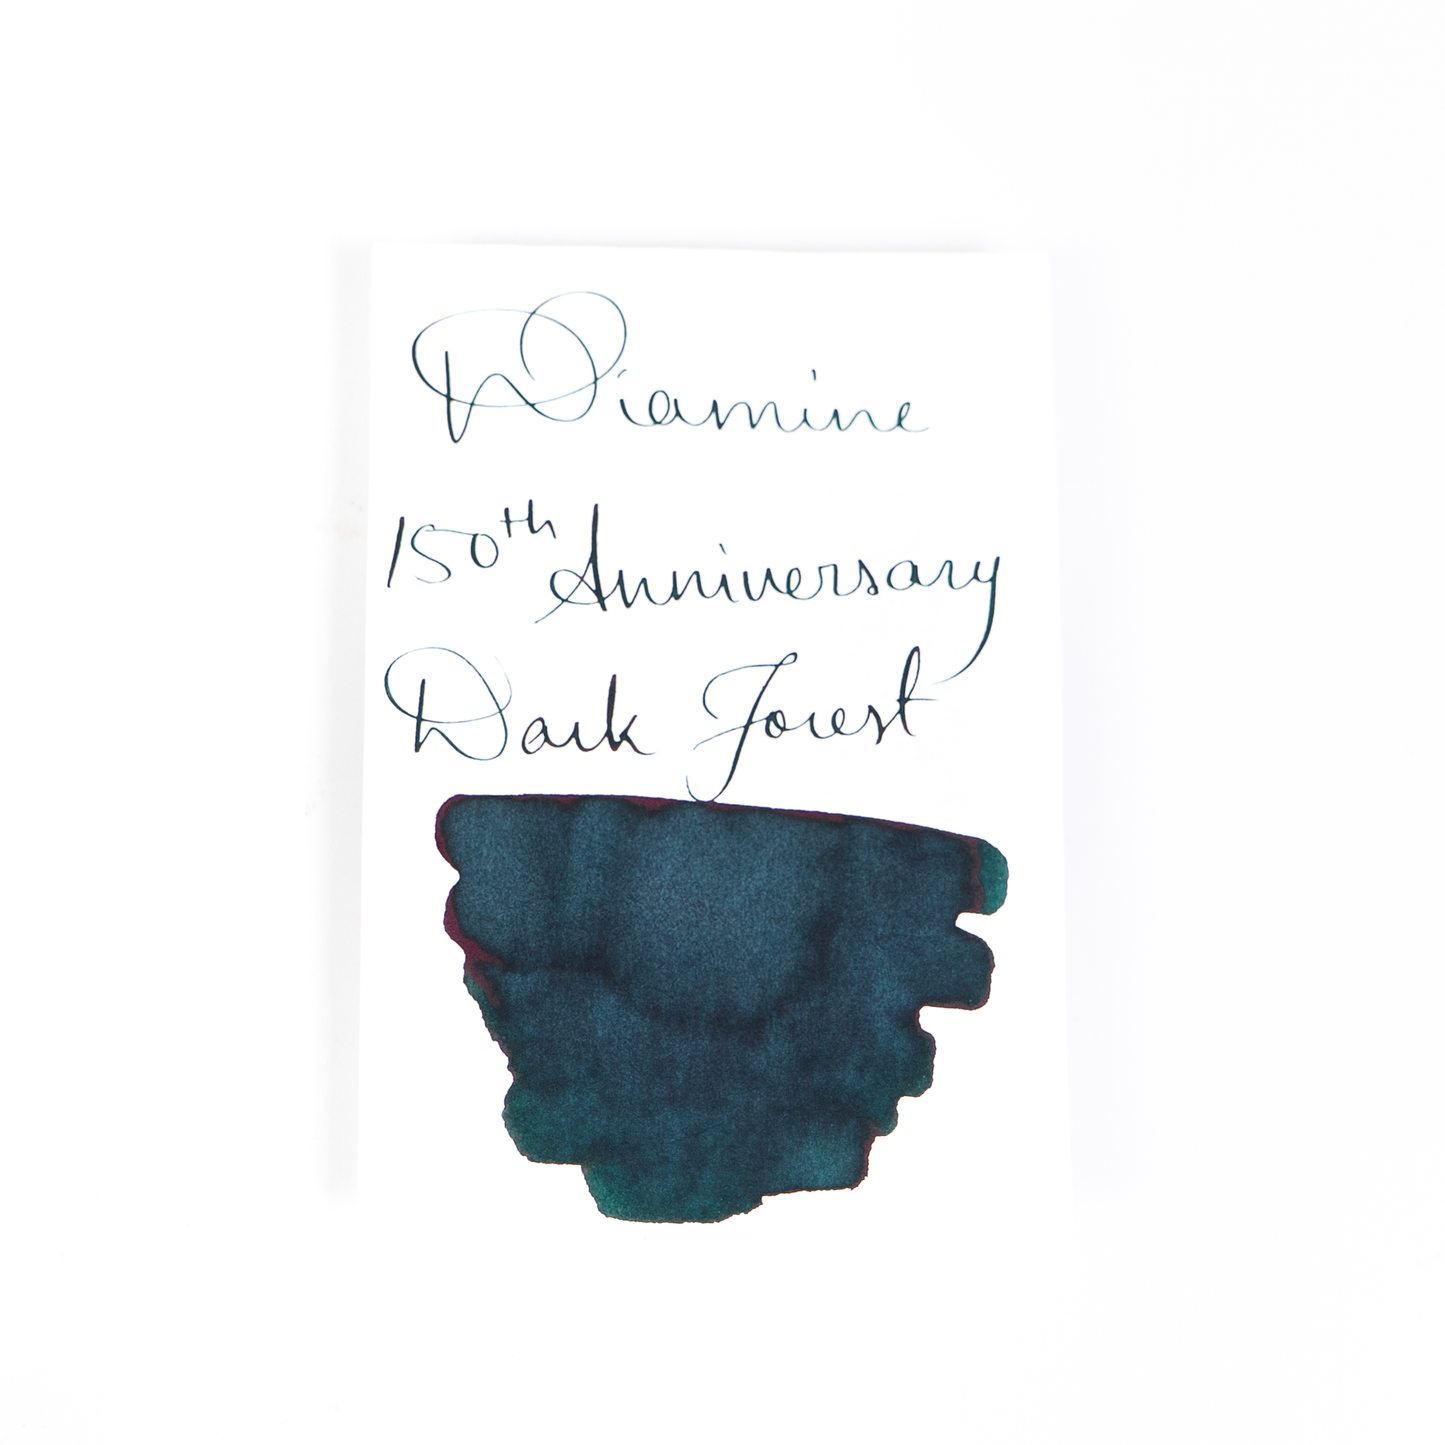 Diamine
150th Anniversary
Dark Forest